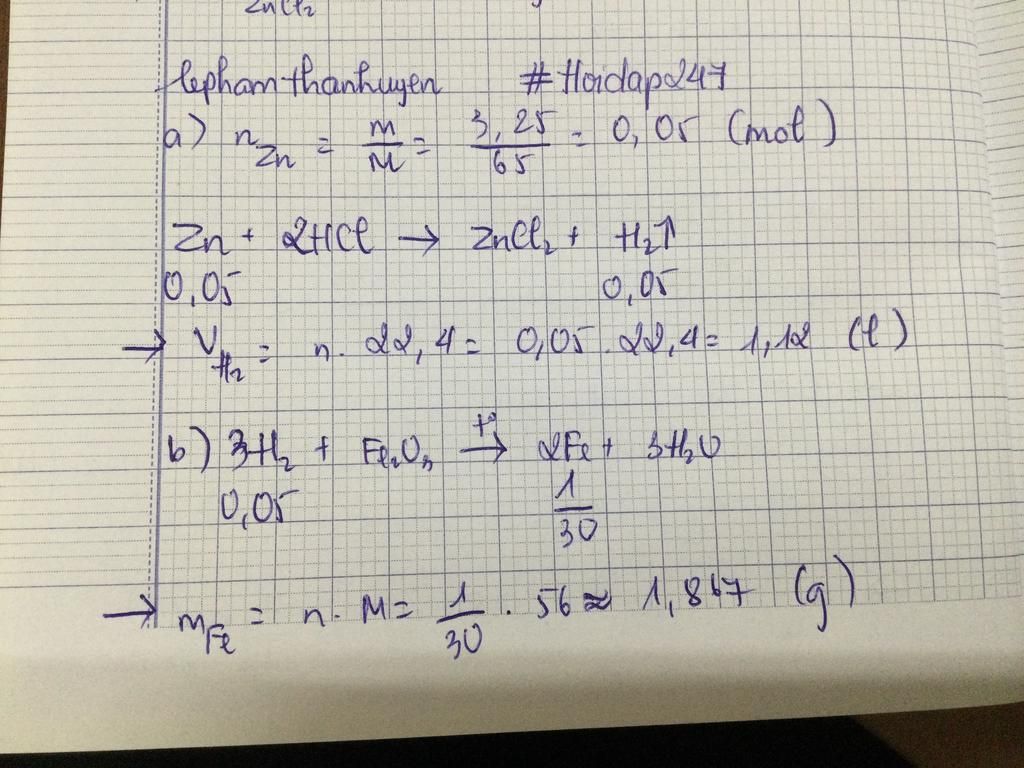 ZnCl₂
lephamthanhuyen #Hoidap247
a) n_Zn = m/M = 3,25/65 = 0,05 (mol)
Zn + 2HCl → ZnCl₂ + H₂↑
0,05 0,05
→ V_H₂ = n. 22,4 = 0,05.22,4 = 1,12 (l)
b) 3H₂ + Fe₂O₃ —t°→ 2Fe + 3H₂O
0,05 1/30
→ m_Fe = n. M = 1/30 . 56 ≈ 1,867 (g)